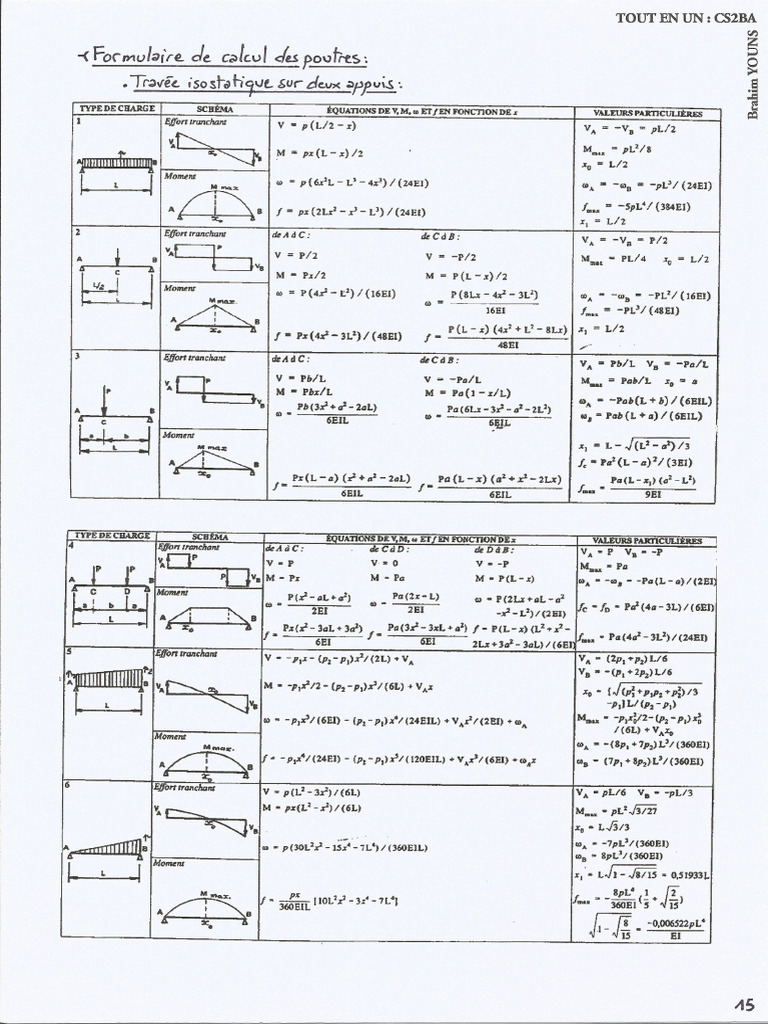 TOUT EN UN : CS2BA
Brahim YOUNS
Formulaire de calcul des poutres :
. Travée isostatique sur deux appuis :
TYPE DE CHARGE SCHÉMA ÉQUATIONS DE V, M, ω ET f EN FONCTION DE x VALEURS PARTICULIÈRES
1
Effort tranchant
V = p (L/2 − x)
M = px (L − x) /2
Moment
M max
ω = p (6x²L − L³ − 4x³) / (24EI)
f = px (2Lx² − x³ − L³) / (24EI)
V_A = −V_B = pL/2
M_max = pL²/8
x₀ = L/2
ω_A = −ω_B = −pL³/ (24EI)
f_max = −5pL⁴/ (384EI)
x₁ = L/2
2
Effort tranchant
Moment
M max.
de A à C : de C à B :
V = P/2 V = −P/2
M = Px/2 M = P (L − x) /2
ω = P (4x² − L²) / (16EI) ω = P (8Lx − 4x² − 3L²) / 16EI
f = Px (4x² − 3L²) / (48EI) f = P (L − x) (4x² + L² − 8Lx) / 48EI
V_A = −V_B = P/2
M_max = PL/4 x₀ = L/2
ω_A = −ω_B = −PL²/ (16EI)
f_max = −PL³/ (48EI)
x₁ = L/2
3
Effort tranchant
Moment
M max
de A à C : de C à B :
V = Pb/L V = −Pa/L
M = Pbx/L M = Pa (1 − x/L)
ω = Pb (3x² + a² − 2aL) / 6EIL ω = Pa (6Lx − 3x² − a² − 2L²) / 6EIL
f = Px (L − a) (x² + a² − 2aL) / 6EIL f = Pa (L − x) (a² + x² − 2Lx) / 6EIL
V_A = Pb/L V_B = −Pa/L
M_max = Pab/L x₀ = a
ω_A = −Pab (L + b) / (6EIL)
ω_B = Pab (L + a) / (6EIL)
x₁ = L − √(L² − a²) /3
f_c = Pa² (L − a)² / (3EI)
f_max = Pa (L − x₁) (a² − L²) / 9EI
TYPE DE CHARGE SCHÉMA ÉQUATIONS DE V, M, ω ET f EN FONCTION DE x VALEURS PARTICULIÈRES
4
Effort tranchant
Moment
de A à C : de C à D : de D à B :
V = P V = 0 V = −P
M = Px M = Pa M = P (L − x)
ω = P (x² − aL + a²) / 2EI ω = Pa (2x − L) / 2EI ω = P (2Lx + aL − a² −x² − L²) / (2EI)
f = Px (x² − 3aL + 3a²) / 6EI f = Pa (3x² − 3xL + a²) / 6EI f = P (L − x) (L² + x² − 2Lx + 3a² − 3aL) / (6EI)
V_A = P V_B = −P
M_max = Pa
ω_A = −ω_B = −Pa (L − a) / (2EI)
f_C = f_D = Pa² (4a − 3L) / (6EI)
f_max = Pa (4a² − 3L²) / (24EI)
5
Effort tranchant
Moment
M max.
V = −p₁x − (p₂ − p₁) x²/ (2L) + V_A
M = −p₁x²/2 − (p₂ − p₁) x³/ (6L) + V_Ax
ω = −p₁x³/ (6EI) − (p₂ − p₁) x⁴/ (24EIL) + V_Ax²/ (2EI) + ω_A
f = −p₁x⁴/ (24EI) − (p₂ − p₁) x⁵/ (120EIL) + V_Ax³/ (6EI) + ω_Ax
V_A = (2p₁ + p₂) L/6
V_B = − (p₁ + 2p₂) L/6
x₀ = {√(p₁² + p₁p₂ + p₂²) /3
−p₁] L/ (p₂ − p₁)
M_max = −p₁x₀²/2 − (p₂ − p₁) x₀³
/ (6L) + V_Ax₀
ω_A = − (8p₁ + 7p₂) L³/ (360EI)
ω_B = (7p₁ + 8p₂) L³/ (360EI)
6
Effort tranchant
Moment
M max.
V = p (L² − 3x²) / (6L)
M = px (L² − x²) / (6L)
ω = p (30L²x² − 15x⁴ − 7L⁴) / (360EIL)
f = px / 360EIL [10L²x² − 3x⁴ − 7L⁴]
V_A = pL/6 V_B = −pL/3
M_max = pL²√3/27
x₀ = L√3/3
ω_A = −7pL³/ (360EI)
ω_B = 8pL³/ (360EI)
x₁ = L√1 − √(8/15) = 0,51933L
f_max = − 8pL⁴ / 360EI (1/5 + √(2/15))
√1 − √(8/15) = −0,006522pL⁴ / EI
15